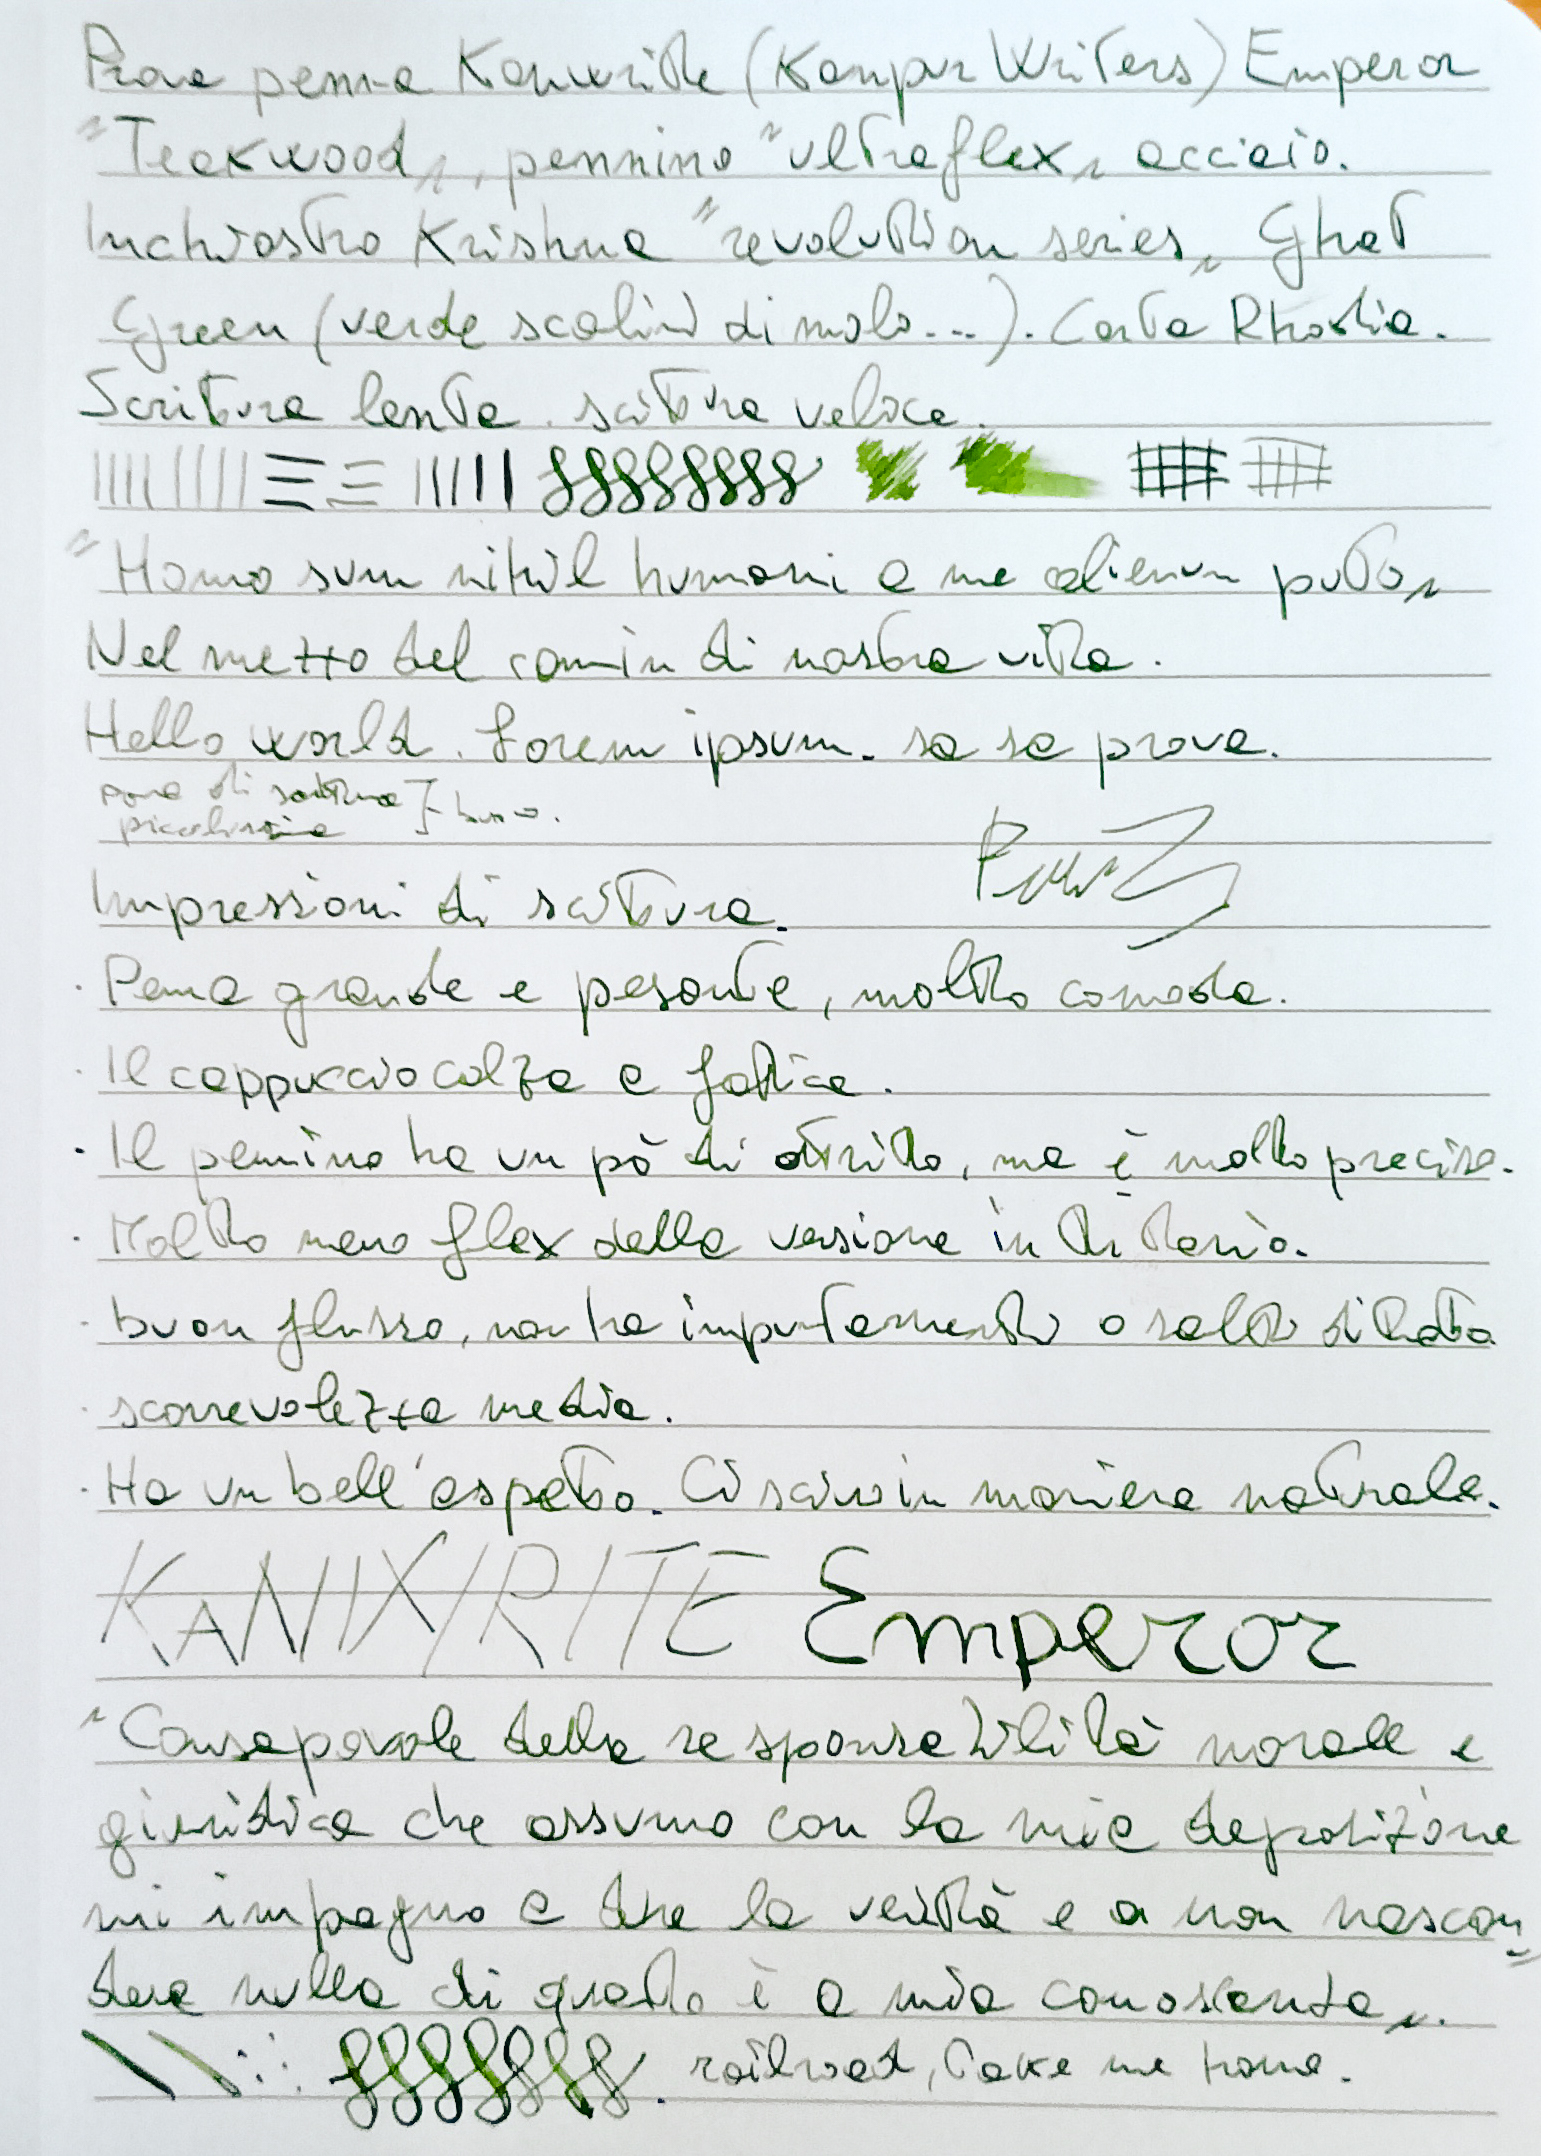 Prova penna Kanwrite (Kanpur Writers) Emperor
"Teakwood", pennino "ultraflex" acciaio.
Inchiostro Krishna "revolution series" Ghat
Green (verde scalini di molo...). Carta Rhodia.
Scrittura lenta. scrittura veloce.
"Homo sum nihil humani a me alienum puto"
Nel mezzo del camin di nostra vita.
Hello world. Lorem ipsum. sa sa prova.
prova di scrittura
piccolissima } buono.
Impressioni di scrittura.
· Penna grande e pesante, molto comoda.
· Il cappuccio calza a fatica.
· Il pennino ha un pò di attrito, ma è molto preciso.
· Molto meno flex della versione in titanio.
· buon flusso, non ha impuntamenti o salti di tratto
· scorrevolezza media.
· Ha un bell'aspetto. Ci scrivo in maniera naturale.
KANWRITE Emperor
"Consapevole della responsabilità morale e
giuridica che assumo con la mia deposizione
mi impegno a dire la verità e a non nascon=
dere nulla di quanto è a mia conoscenza".
railroad, take me home.